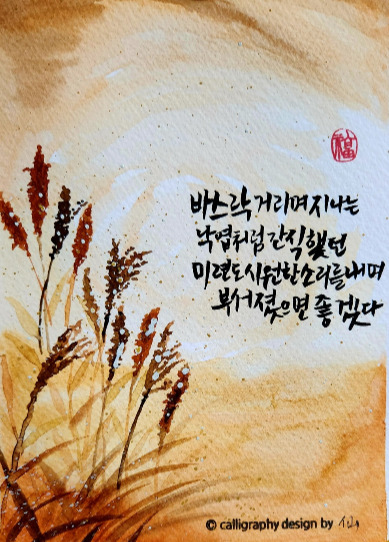 福
바스락 거리며 지나는
낙엽처럼 간직했던
미련도 시원한 소리를 내며
부서졌으면 좋겠다
© calligraphy design by